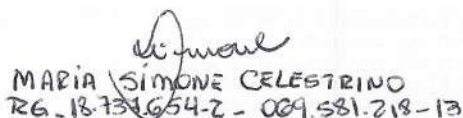 MARIA SIMONE CELESTRINO
RG - 18.731.654-2 - 069.581.218-13